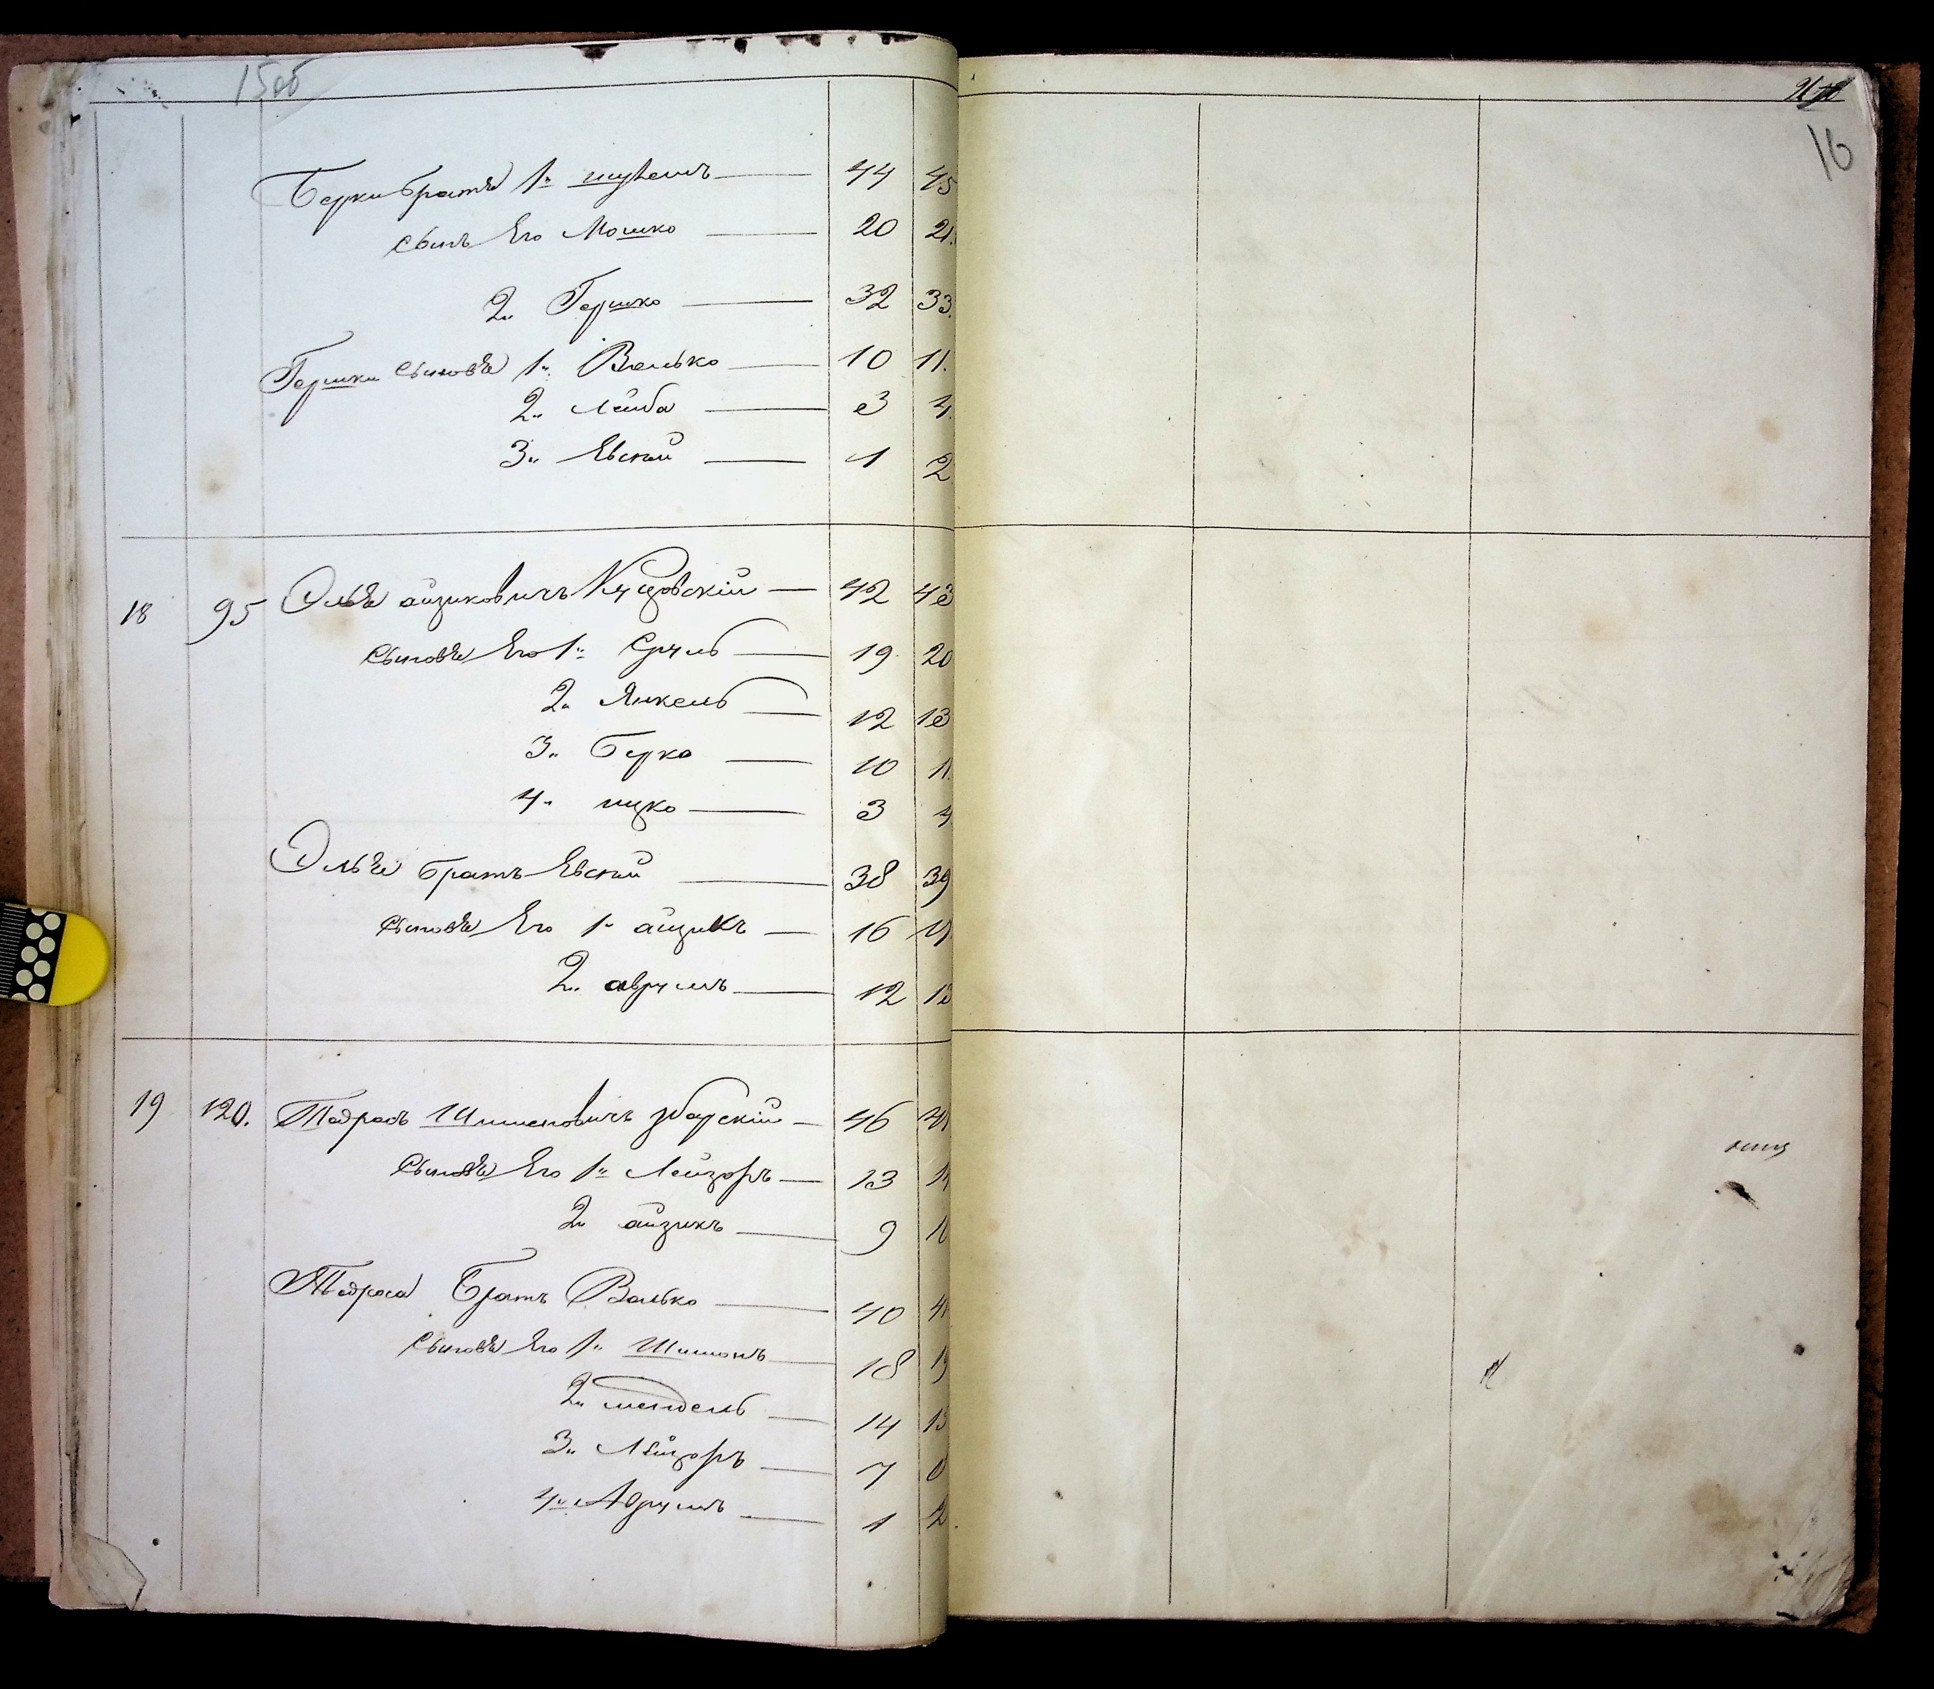 15об
Берки братья 1й шулемъ 44 45
сынъ Его Мошко 20 21.
2й Гершко 32 33.
Гершки сыновья 1й Велько 10 11.
2й Лейба 3 4.
3й Евсей 1 2
18 95 Эльа айзиковичъ 42 43
сыновья Его 1й Сруль 19 20
2й Янкель 12 13
3й Берко 10 11.
4й ицко 3 4
Эльи братъ Евсей 38 39
сыновья Его 1й айзикъ 16 17
2й аврумъ 12 13
19 120. Тодросъ Шимоновичъ збарскій 46 47
сыновья Его 1й Лейзоръ 13 14
2й айзикъ 9 10
Тодроса Братъ Волько 40 41
сыновья Его 1й Шимонъ 18 19
2й мендель 14 15
3й Лейзоръ 7 8
4й Аврумъ 1 2
16